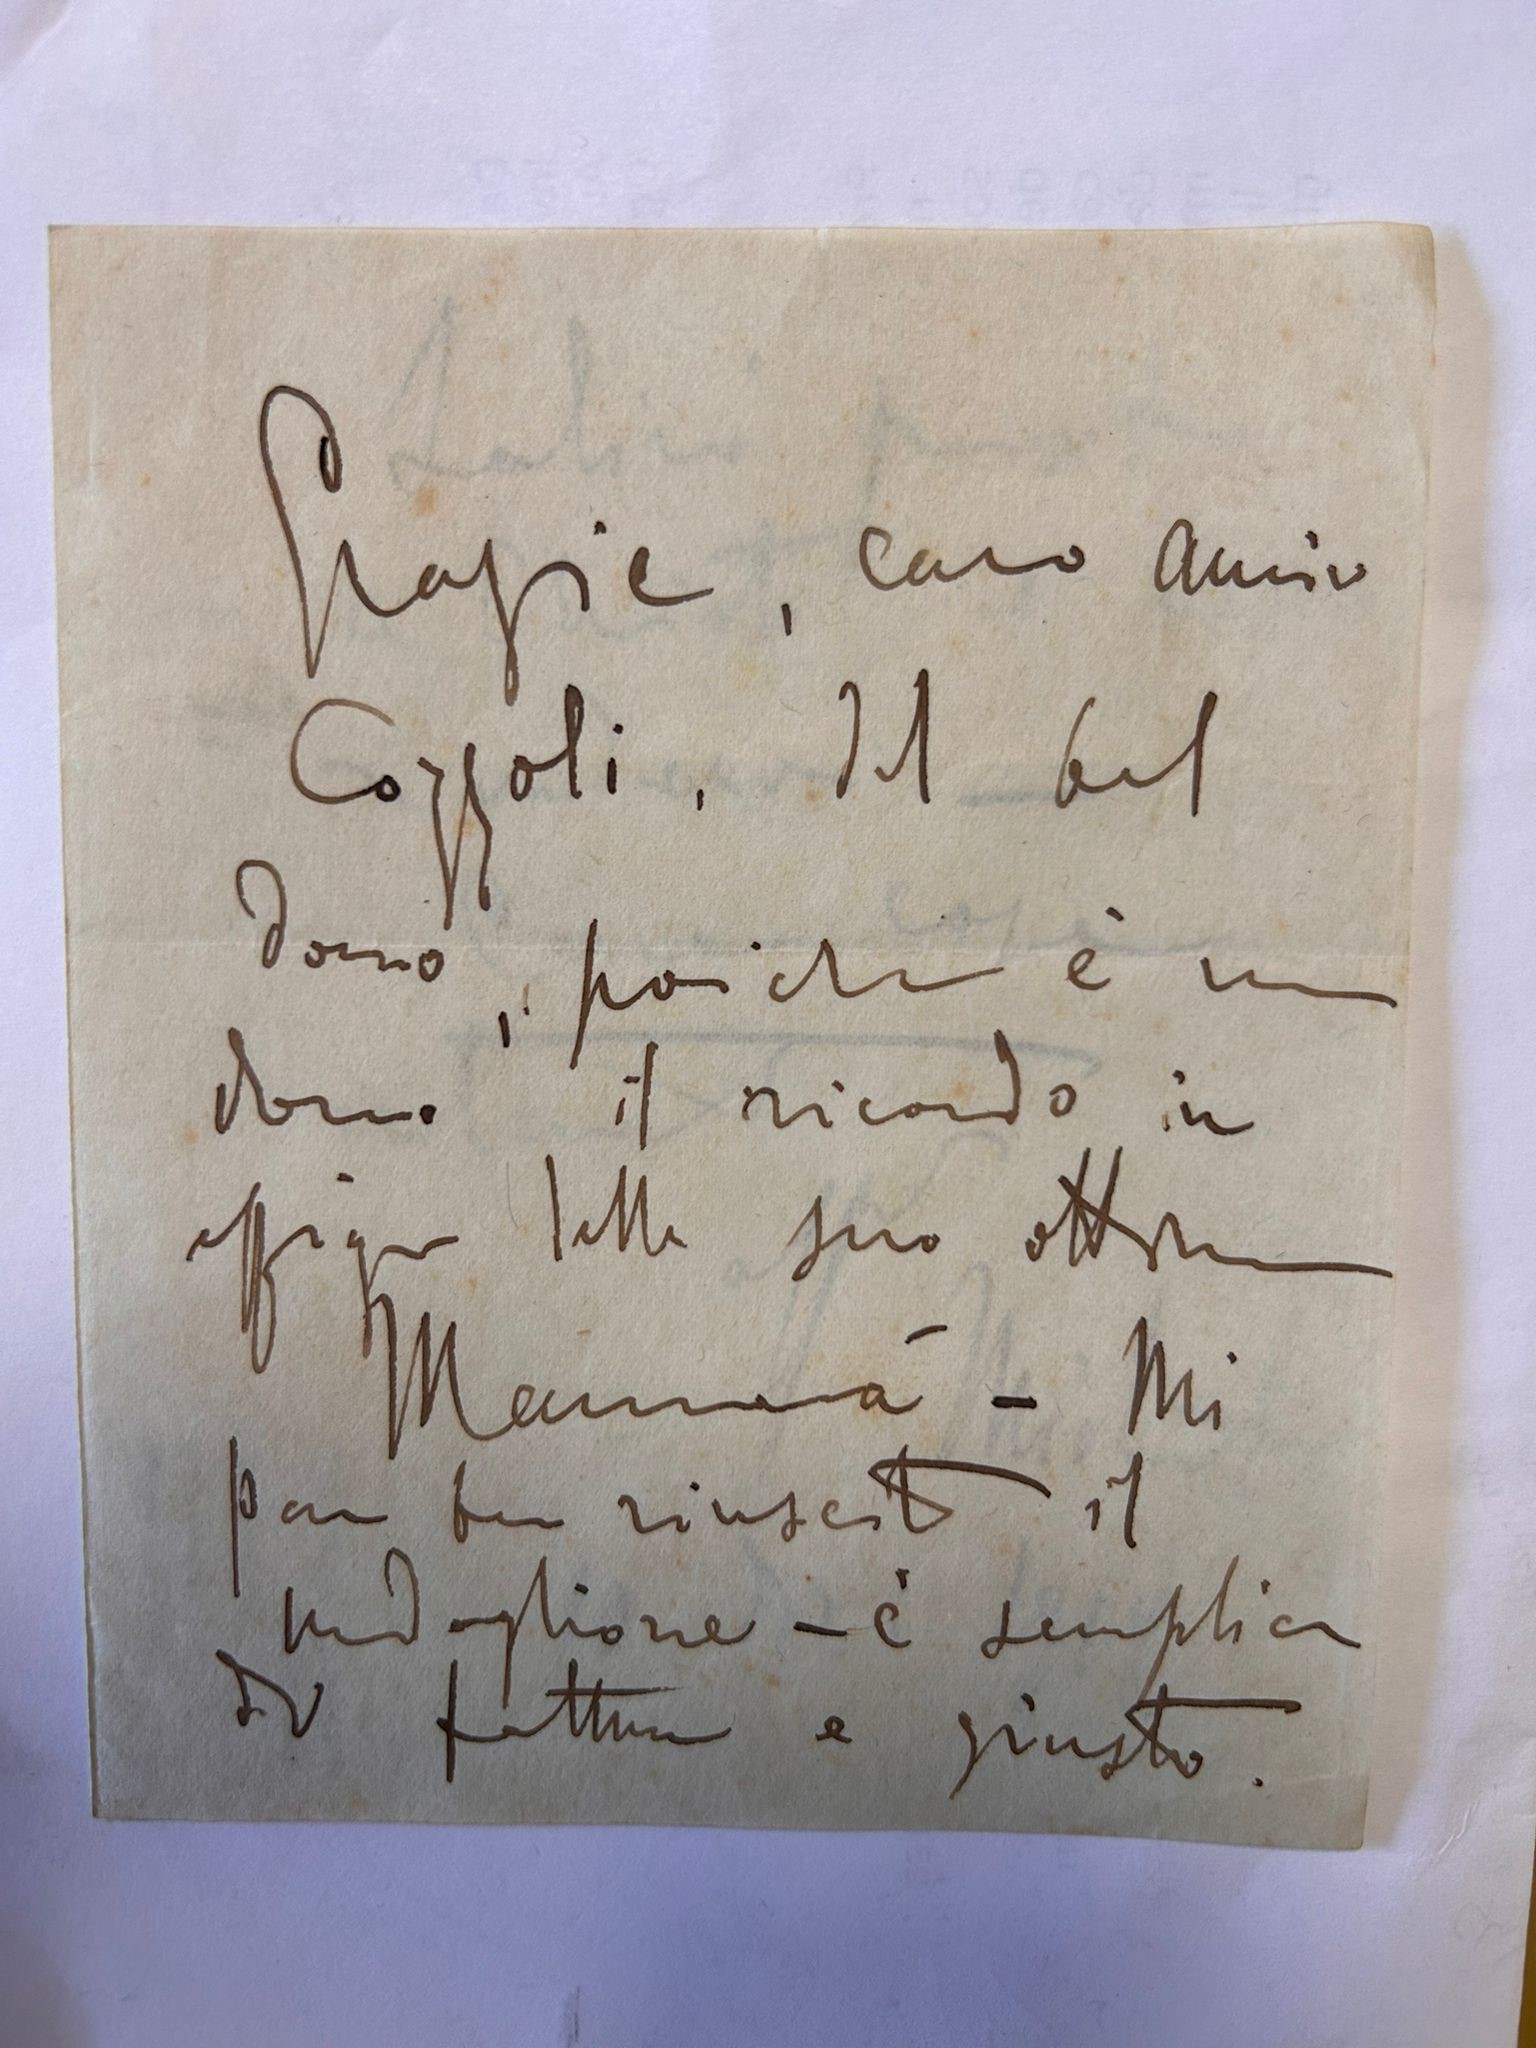 Grazie, caro Amico
Cozzoli, del bel
dono, poiché è un
dono il ricordo in
effigie della sua ottima
Mammà - Mi
par ben riuscito il
medaglione - è semplice
di fattura e giusto.